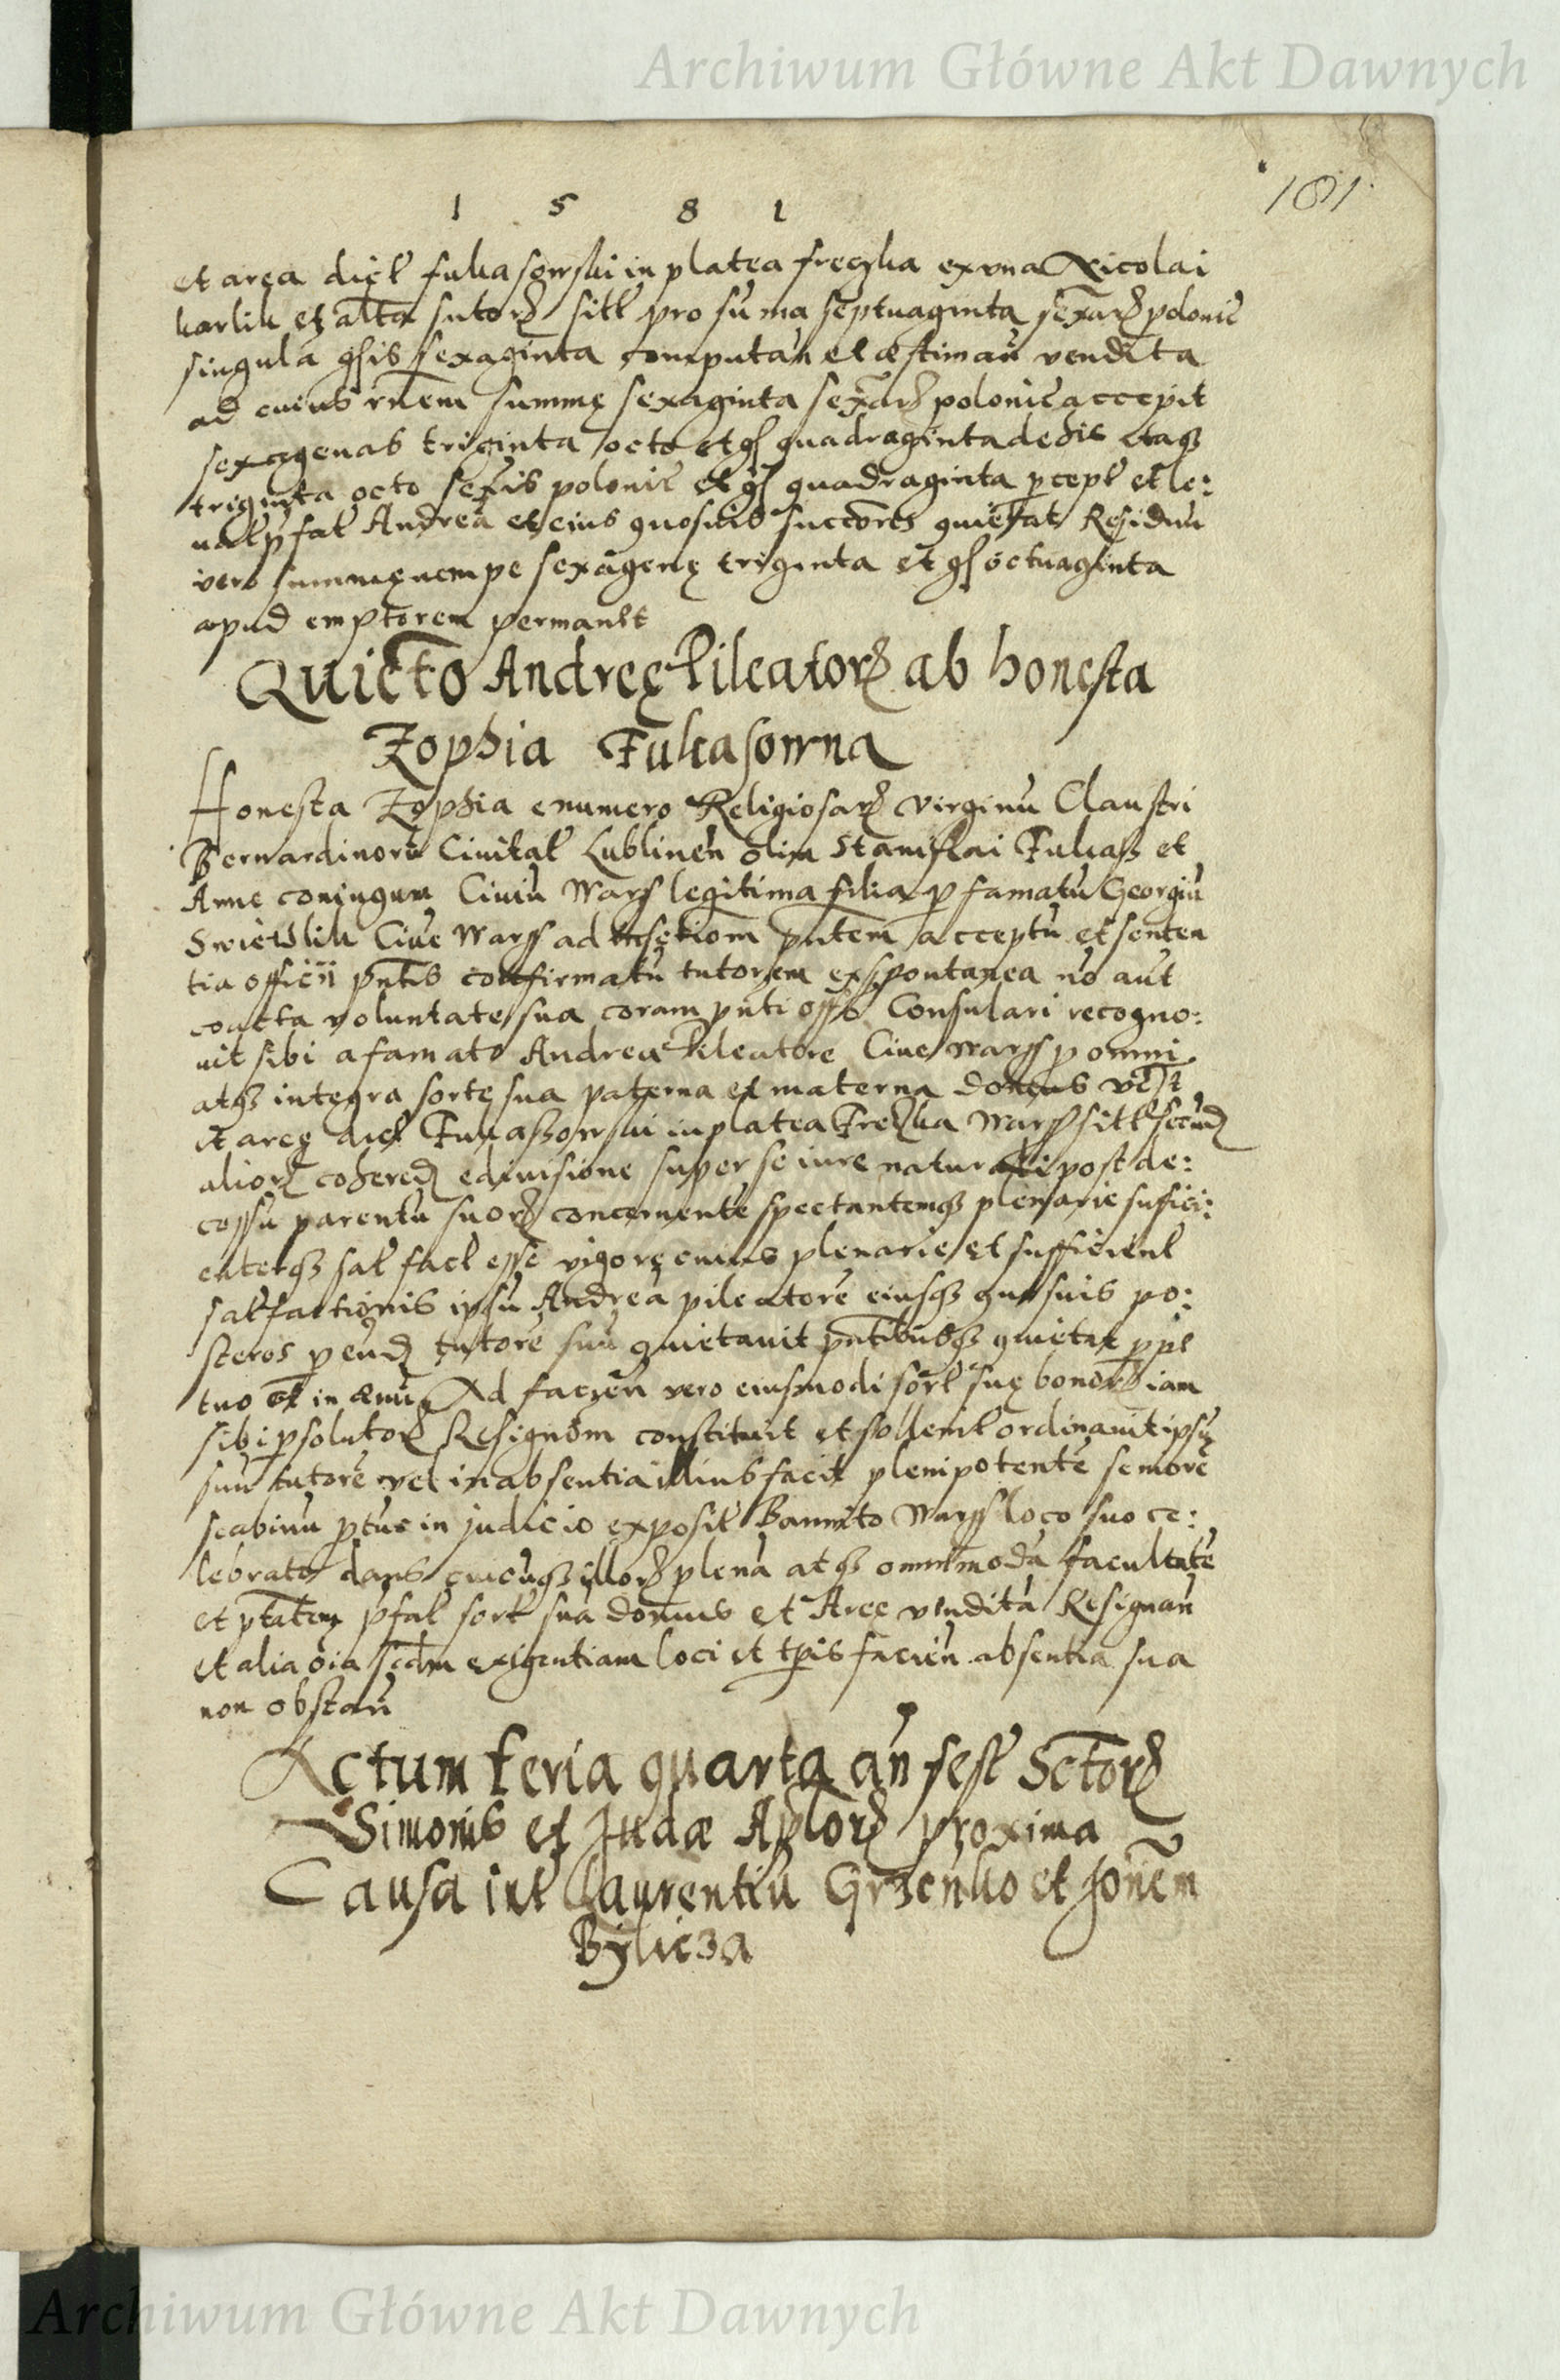 Archiwum Główne Akt Dawnych
181
1 5 8 1
et area dict fukasowski in platea freczka ex vna Nicolai
karlik et alta sutor sitt pro suma septuaginta sexar polonic
singula gsis sexaginta computan et æstiman vendita
ad cuius rnem summę sexaginta sexar polonic accepit
sexagenas triginta octo et gs quadraginta de hic itaqz
triginta octo sexis polonic et gs quadraginta pcept et le:
uat pfat Andrea et eius quosuis succores quietat Residuu
vero summę nempe sexagenę triginta et gs octuaginta
apud emptorem permanet
Quieto Andreę Pileator ab honesta
Zophia Fukasowna
Honesta Zophia e numero Religiosar virginu Claustri
Bernardinoru Ciuitat Lublinen olim Stanislai Fukasz et
Anne coniugum Ciuiu Wars legitima filia p famatu Georgiu
Swietlik Ciue Warss ad pntem acceptu et senten
tia officii pntis confirmatu tutorem ex spontanea no aut
coacta voluntate sua coram pnti offo Consulari recogno:
uit sibi a famato Andrea Pileatore Ciue Warss p omni
atqz integra sorte sua paterna et materna domus
et areę dict Fukaszowski in platea Freczka Warss sitt secud
alior cohered e diuisione super se iure naturali post de:
cessu parentu suor concernente spectantemqz plenarie sufici:
enterqz sat fact esse vigore cuius plenarie et sufficient
satfactionis ipsu Andrea pileatore eiusqz quosuis po:
steros p eund tutore suu quietauit pntibusqz quietat ppe
tuo et in æuu Ad facien vero eiusmodi sort suę bonor iam
sibi psolutor Resignom constituit et sollemt ordinauit ipsu
suu tutore vel in absentia illius facit plenipotente seniore
scabinu ptuc in judicio exposit Bannito Warss loco suo ce:
lebrato dans cuicuqz illor plena atqz omnimoda facultate
et ptatem pfat sort sua domus et Areę vendita Resignan
et alia oia scdm exigentiam loci et tpis facien absentia sua
non obstan
Actum feria quarta an fest Sctor
Simonis et Judæ Aplor proxima
Causa int Laurentiu Grzenko et Jonem
Bÿlicza
Archiwum Główne Akt Dawnych